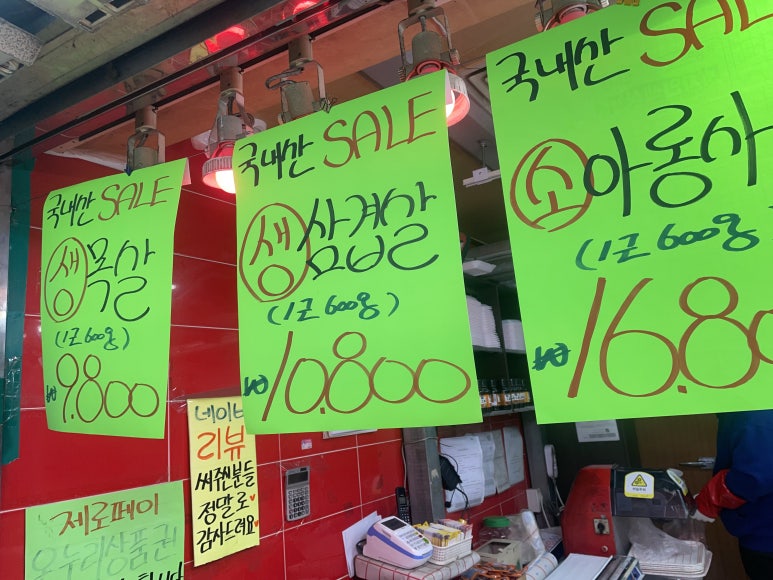 국내산 SALE
생 목살
(1근 600g)
₩9.800
국내산 SALE
생 삼겹살
(1근 600g)
₩10.800
국내산 SALE
소 아롱사
(1근 600g
₩16.80
리뷰
써주신분들
정말로
감사드려요
제로페이
온누리상품권